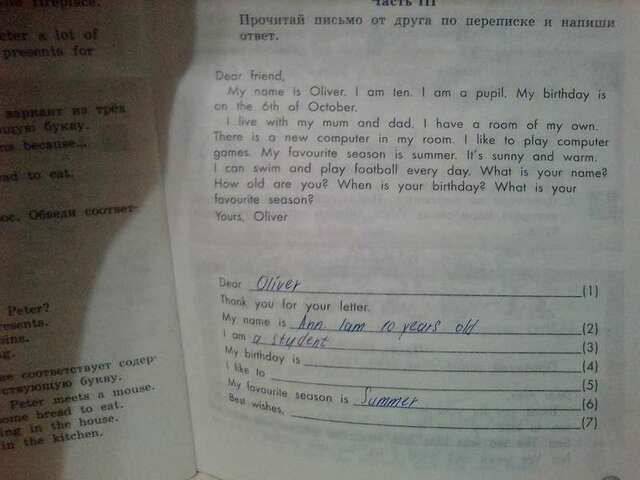 Часть III
Прочитай письмо от друга по переписке и напиши
ответ.
Dear friend,
My name is Oliver. I am ten. I am a pupil. My birthday is
on the 6th of October.
I live with my mum and dad. I have a room of my own.
There is a new computer in my room. I like to play computer
games. My favourite season is summer. It's sunny and warm.
I can swim and play football every day. What is your name?
How old are you? When is your birthday? What is your
favourite season?
Yours, Oliver
Dear Oliver (1)
Thank you for your letter.
My name is Ann I am 10 years old (2)
I am a student (3)
My birthday is (4)
I like to (5)
My favourite season is Summer (6)
Best wishes, (7)
fireplace.
eter a lot of
presents for
вариант из трёх
ующую букву.
because...
ead to eat.
ос. Обведи соответ-
Peter?
resents.
ng.
ие соответствует содер-
тствующую букву.
Peter meets a mouse.
ome bread to eat.
ing in the house.
in the kitchen.